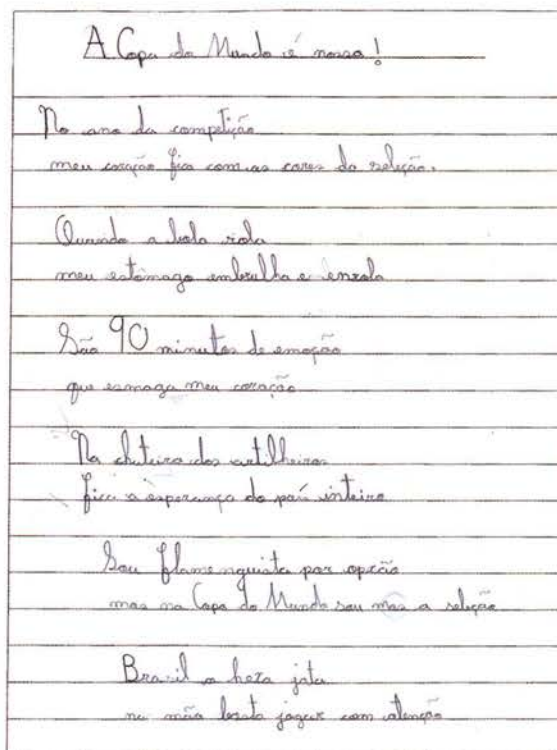 A Copa do Mundo é nossa!
No ano da competição
meu coração fica com as cores da seleção.
Quando a bola rola
meu estômago embrulha e enrola
São 90 minutos de emoção
que esmaga meu coração
Na chuteira dos artilheiros
fica a esperança do país inteiro
Sou flamenguista por opção
mas na Copa do Mundo sou mas a seleção
Brasil a hora
jogar com atenção